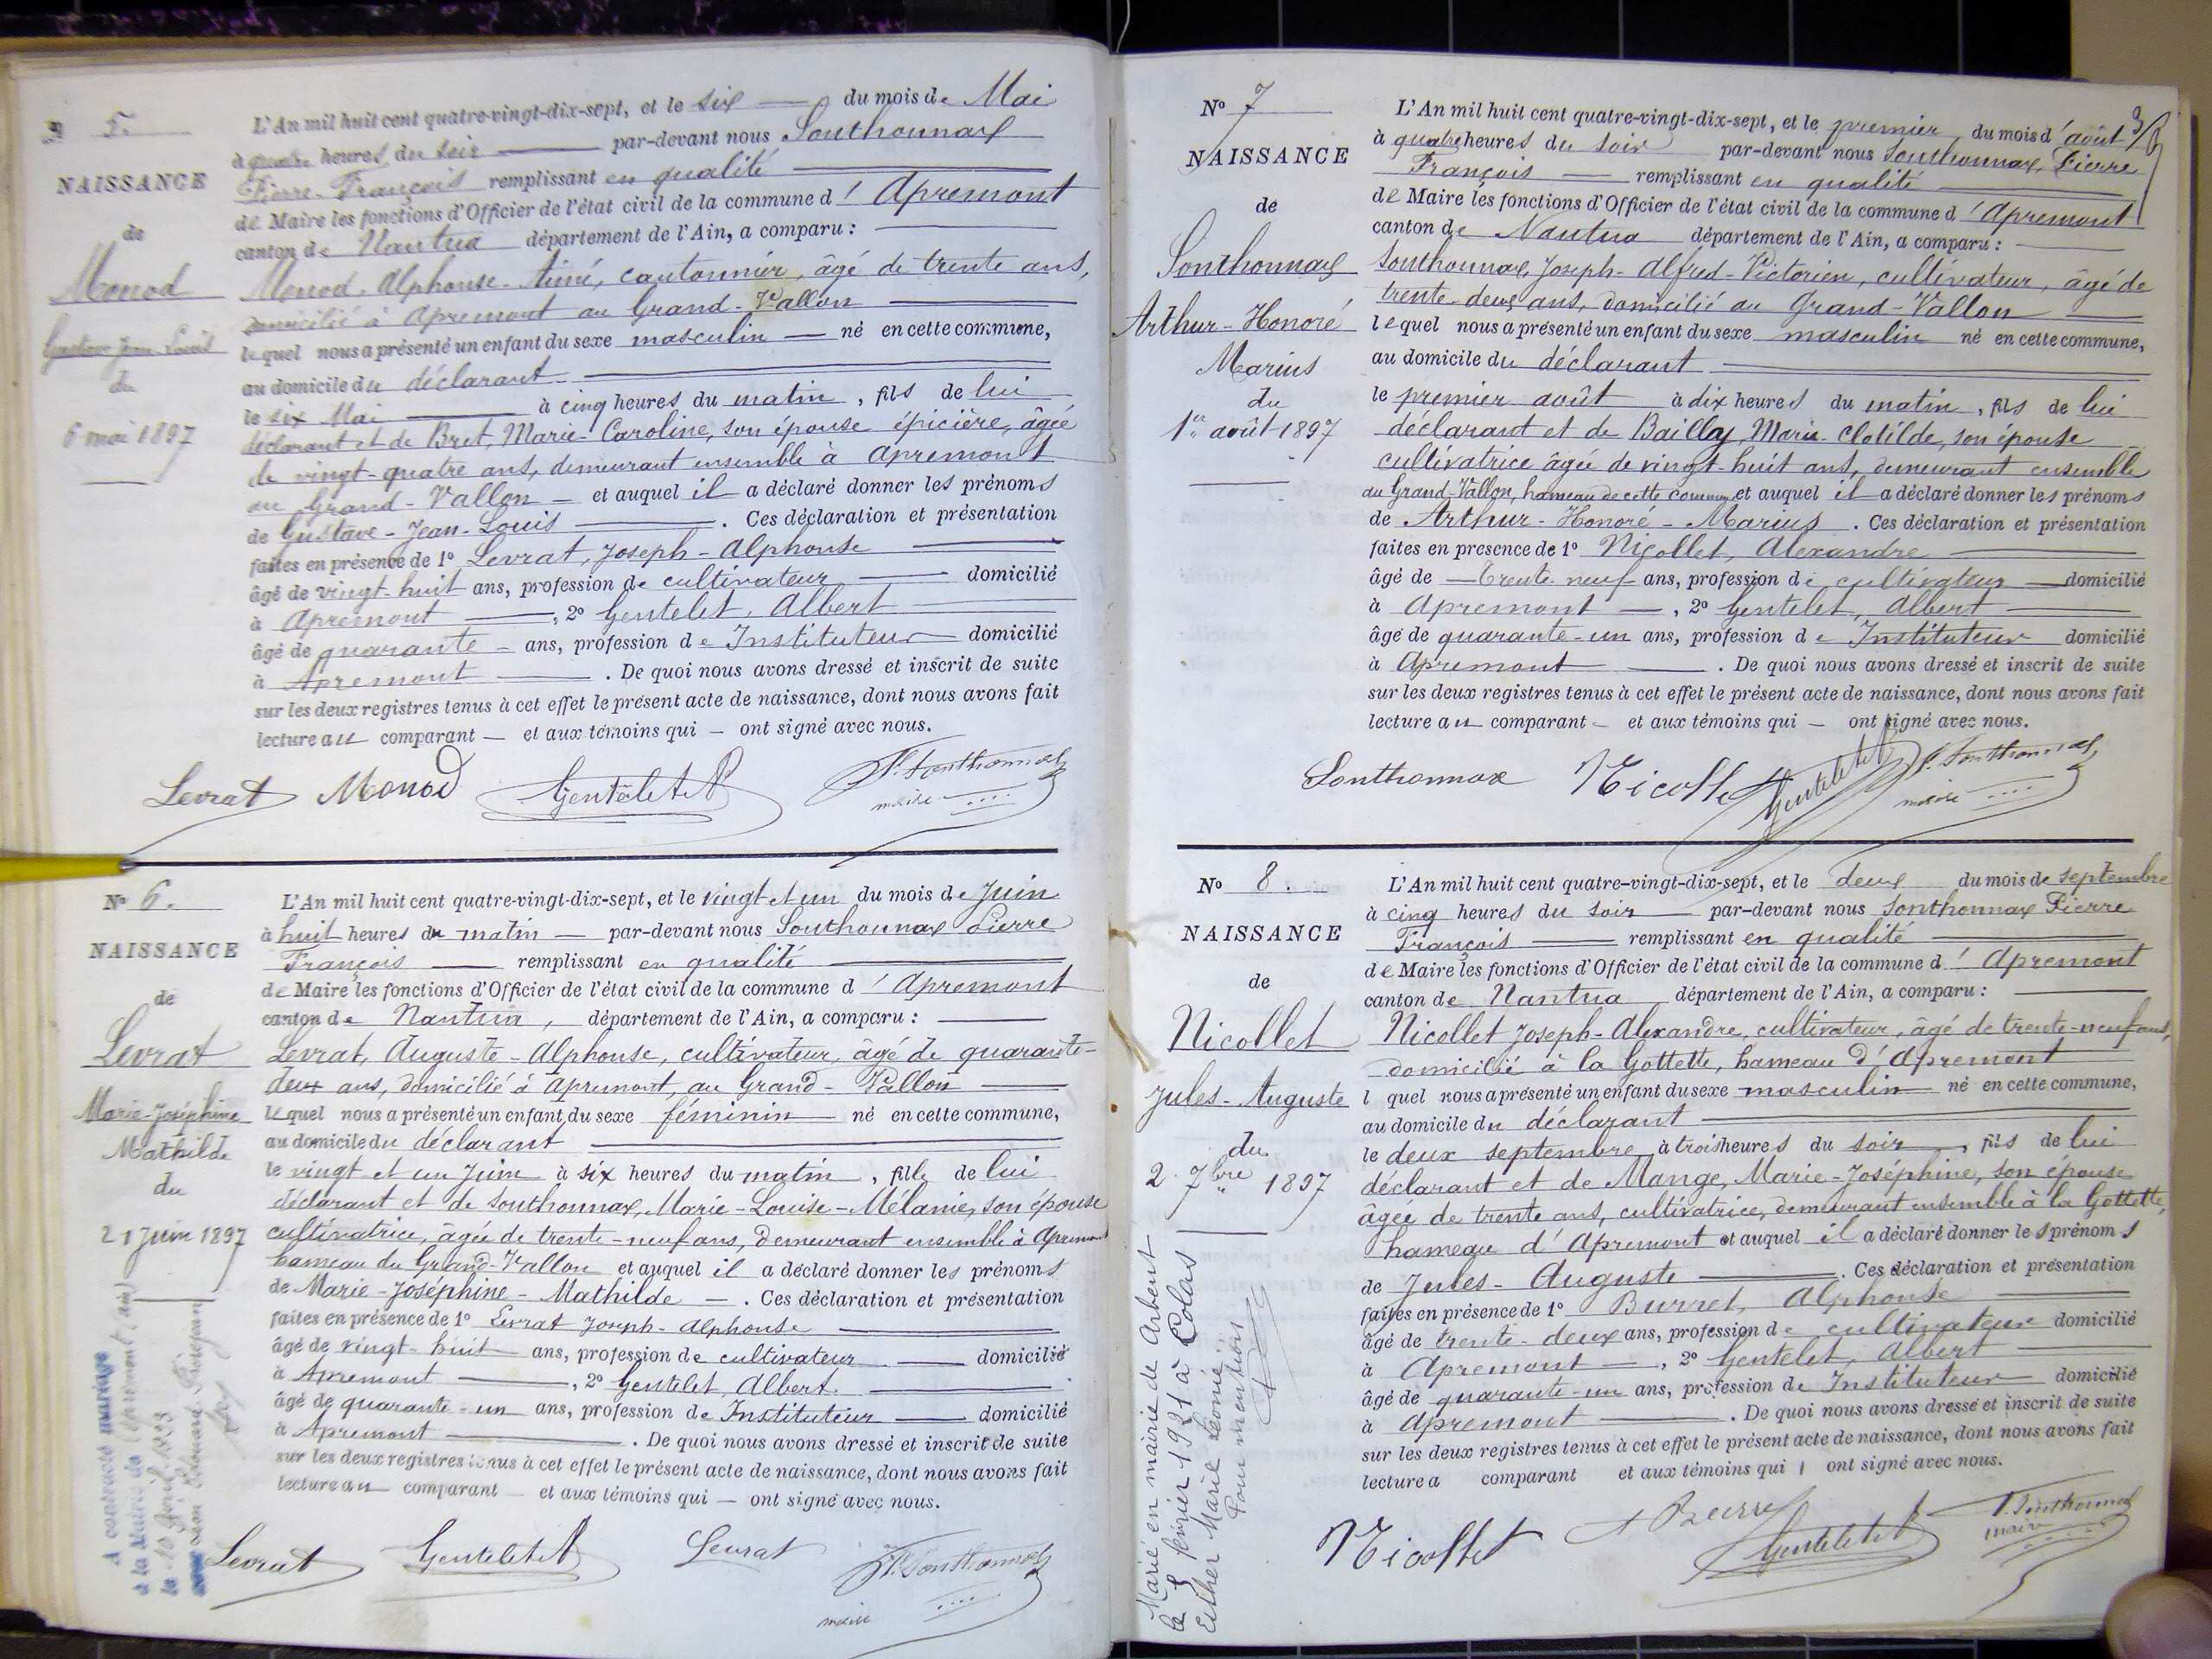 5.
NAISSANCE
de
Monod
Gustave Jean-Louis
du
6 mai 1897
L'An mil huit cent quatre-vingt-dix-sept, et le six du mois de Mai
à quatre heures du soir par-devant nous Sonthonnax
Pierre-François remplissant en qualité
de Maire les fonctions d'Officier de l'état civil de la commune d'Apremont
canton de Nantua département de l'Ain, a comparu :
Monod, Alphonse-Aimé, cantonnier, âgé de trente ans,
domicilié à Apremont au Grand-Vallon
lequel nous a présenté un enfant du sexe masculin né en cette commune,
au domicile du déclarant
le six Mai à cinq heures du matin, fils de lui
déclarant et de Bret, Marie-Caroline, son épouse épicière, âgée
de vingt-quatre ans, demeurant ensemble à Apremont
au Grand-Vallon et auquel il a déclaré donner les prénoms
de Gustave-Jean-Louis. Ces déclaration et présentation
faites en présence de 1º Levrat, Joseph-Alphonse
âgé de vingt-huit ans, profession de cultivateur domicilié
à Apremont, 2º Gentelet, Albert
âgé de quarante ans, profession de Instituteur domicilié
à Apremont. De quoi nous avons dressé et inscrit de suite
sur les deux registres tenus à cet effet le présent acte de naissance, dont nous avons fait
lecture au comparant et aux témoins qui ont signé avec nous.
Levrat Monod Gentelet A P. Sonthonnax
maire
Nº 6.
NAISSANCE
de
Levrat
Marie-Joséphine
Mathilde
du
21 Juin 1897
A contracté mariage
à la Mairie de Apremont (Ain)
le 10 Avril 1933
avec
L'An mil huit cent quatre-vingt-dix-sept, et le vingt et un du mois de Juin
à huit heures du matin par-devant nous Sonthonnax Pierre
François remplissant en qualité
de Maire les fonctions d'Officier de l'état civil de la commune d'Apremont
canton de Nantua, département de l'Ain, a comparu :
Levrat, Auguste-Alphonse, cultivateur, âgé de quarante-
deux ans, domicilié à Apremont, au Grand-Vallon
lequel nous a présenté un enfant du sexe féminin né en cette commune,
au domicile du déclarant
le vingt et un Juin à six heures du matin, fille de lui
déclarant et de Sonthonnax, Marie-Louise-Mélanie, son épouse
cultivatrice, âgée de trente-neuf ans, demeurant ensemble à Apremont
hameau du Grand-Vallon et auquel il a déclaré donner les prénoms
de Marie-Joséphine-Mathilde. Ces déclaration et présentation
faites en présence de 1º Levrat Joseph-Alphonse
âgé de vingt-huit ans, profession de cultivateur domicilié
à Apremont, 2º Gentelet, Albert.
âgé de quarante-un ans, profession de Instituteur domicilié
à Apremont. De quoi nous avons dressé et inscrit de suite
sur les deux registres tenus à cet effet le présent acte de naissance, dont nous avons fait
lecture au comparant et aux témoins qui ont signé avec nous.
Levrat Gentelet A Levrat P. Sonthonnax
maire
3
Nº 7
NAISSANCE
de
Sonthonnax
Arthur-Honoré
Marius
du
1er août 1897
L'An mil huit cent quatre-vingt-dix-sept, et le premier du mois d'août
à quatre heures du soir par-devant nous Sonthonnax, Pierre
François remplissant en qualité
de Maire les fonctions d'Officier de l'état civil de la commune d'Apremont
canton de Nantua département de l'Ain, a comparu :
Sonthonnax, Joseph-Alfred-Victorien, cultivateur, âgé de
trente-deux ans, domicilié au Grand-Vallon
lequel nous a présenté un enfant du sexe masculin né en cette commune,
au domicile du déclarant
le premier août à dix heures du matin, fils de lui
déclarant et de Bailly, Marie-Clotilde, son épouse
cultivatrice âgée de vingt-huit ans, demeurant ensemble
au Grand-Vallon, hameau de cette commune et auquel il a déclaré donner les prénoms
de Arthur-Honoré-Marius. Ces déclaration et présentation
faites en presence de 1º Nicollet, Alexandre
âgé de trente-neuf ans, profession de cultivateur domicilié
à Apremont, 2º Gentelet, Albert
âgé de quarante-un ans, profession de Instituteur domicilié
à Apremont. De quoi nous avons dressé et inscrit de suite
sur les deux registres tenus à cet effet le présent acte de naissance, dont nous avons fait
lecture au comparant et aux témoins qui ont signé avec nous.
Sonthonnax Nicollet Gentelet A P. Sonthonnax
maire
Nº 8.
NAISSANCE
de
Nicollet
Jules-Auguste
du
2 7bre 1897
Marié en mairie de Arbent
le 5 février 1921 à Colas
Esther Marie Léonie.
Pour mention
L'An mil huit cent quatre-vingt-dix-sept, et le deux du mois de septembre
à cinq heures du soir par-devant nous Sonthonnax Pierre
François remplissant en qualité
de Maire les fonctions d'Officier de l'état civil de la commune d'Apremont
canton de Nantua département de l'Ain, a comparu :
Nicollet Joseph-Alexandre, cultivateur, âgé de trente-neuf ans,
domicilié à la Gottette, hameau d'Apremont
l quel nous a présenté un enfant du sexe masculin né en cette commune,
au domicile du déclarant
le deux septembre à trois heures du soir, fils de lui
déclarant et de Mange, Marie-Joséphine, son épouse
âgée de trente ans, cultivatrice, demeurant ensemble à la Gottette,
hameau d'Apremont et auquel il a déclaré donner les prénoms
de Jules-Auguste. Ces déclaration et présentation
faites en présence de 1º Burret, Alphonse
âgé de trente-deux ans, profession de cultivateur domicilié
à Apremont, 2º Gentelet, Albert
âgé de quarante-un ans, profession de Instituteur domicilié
à Apremont. De quoi nous avons dressé et inscrit de suite
sur les deux registres tenus à cet effet le présent acte de naissance, dont nous avons fait
lecture a comparant et aux témoins qui ont signé avec nous.
Nicollet Burret Gentelet A P. Sonthonnax
maire